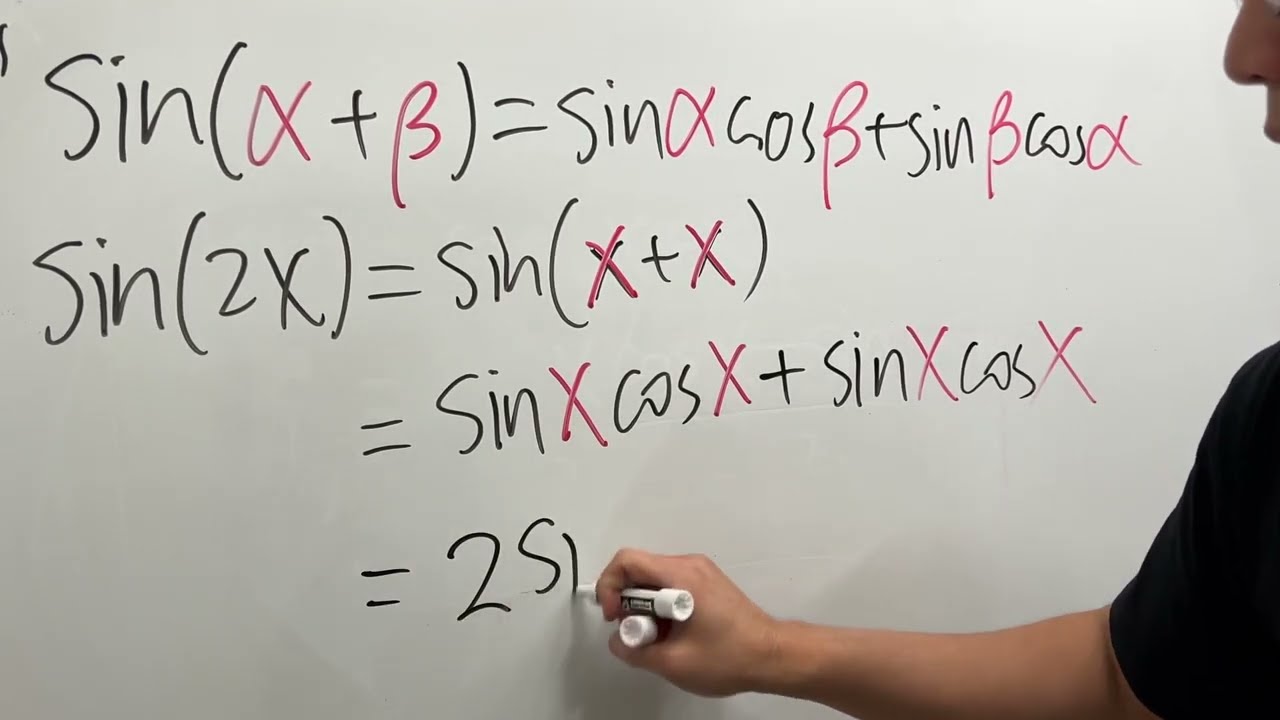 sin(α+β)=sinαcosβ+sinβcosα
sin(2x)=sin(x+x)
=sinxcosx+sinxcosx
=2si